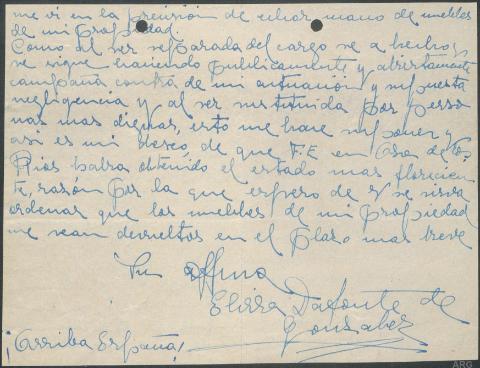 me vi en la precision de echar mano de muebles
de mi propiedad.
Como al ser separada del cargo se a hecho y
se sigue haciendo publicamente y abiertamente
campaña contra de mi actuacion y supuesta
negligencia y al ser sustituida por perso
nas mas dignas, esto me hace suponer y
asi es mi deseo de que F.E en Oza de los
Rios habra obtenido el estado mas florecien
te, razón por la que espero de V se sirva
ordenar que los muebles de mi propiedad
me sean devueltos en el plazo mas breve
Su affma
Elisa Dafonte de
Gonzalez
¡Arriba España!
ARG